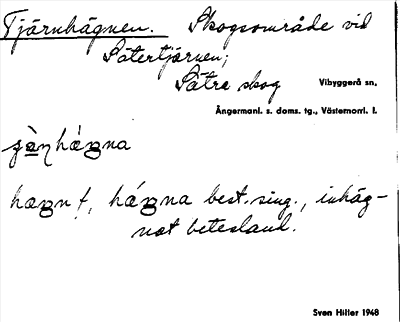 Tjärnhägnen. Skogsområde vid
Sätertjärnen;
Sätra skog
Vibyggerå sn,
Ångermanl. s. doms. tg., Västernorrl. l.
best. sing., inhäg-
nat betesland.
Sven Hiller 1948